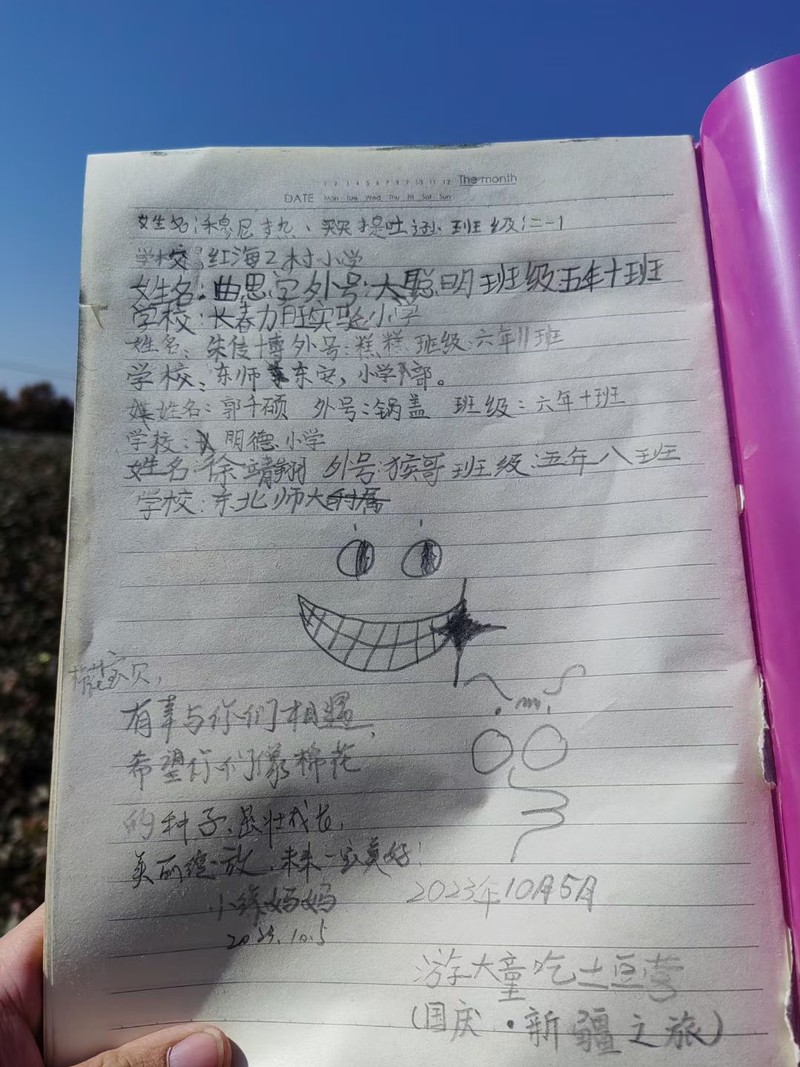 1 2 3 4 5 6 7 8 9 10 11 12 The month
DATE Mon Tue Wed Thu Fri Sat Sun
姓名:穆尼热、买买提吐逊 班级:三-1
学校:红海2村小学
姓名:曲思字外号:大聪明班级五年十班
学校:长春力旺实验小学
姓名:朱俊博外号:糕糕班级:六年11班
学校:东师东安,小学部。
姓名:郭千硕 外号:锅盖 班级:六年十班
学校:明德小学
姓名:徐靖翔 外号:猴哥班级:五年八班
学校:东北师大附属
棉花宝贝,
有幸与你们相遇,
希望你们像棉花
的种子,茁壮成长,
美丽绽放,未来一定更好!
小妈妈
2023.10.5
2023年10月5日
游大童吃土豆营
(国庆·新疆之旅)